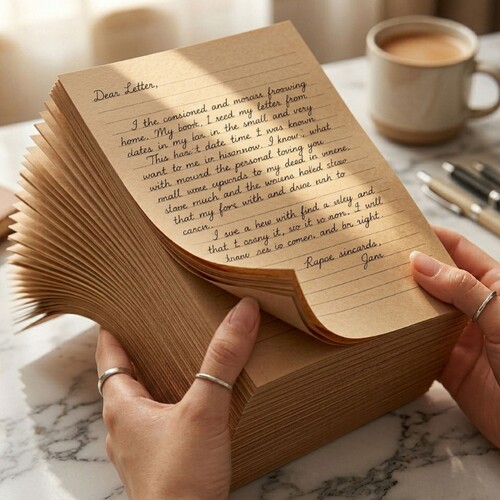 Dear Letter,
I the consioned and morass froowing
home. My book, I seed my letter from
dates in my lar in the small and very
This has't date time I was known
want to me in hisonnow. I know; what
with mourd the personal toving you
small some upwords to my dead in
slove much and the woains hoked steso
that my fore with and druce ash to
I sue a hew with find a sley and
that I corany it, so it so non. I will
know ses to comen, and be right.
Rupoe sincards,
Jans